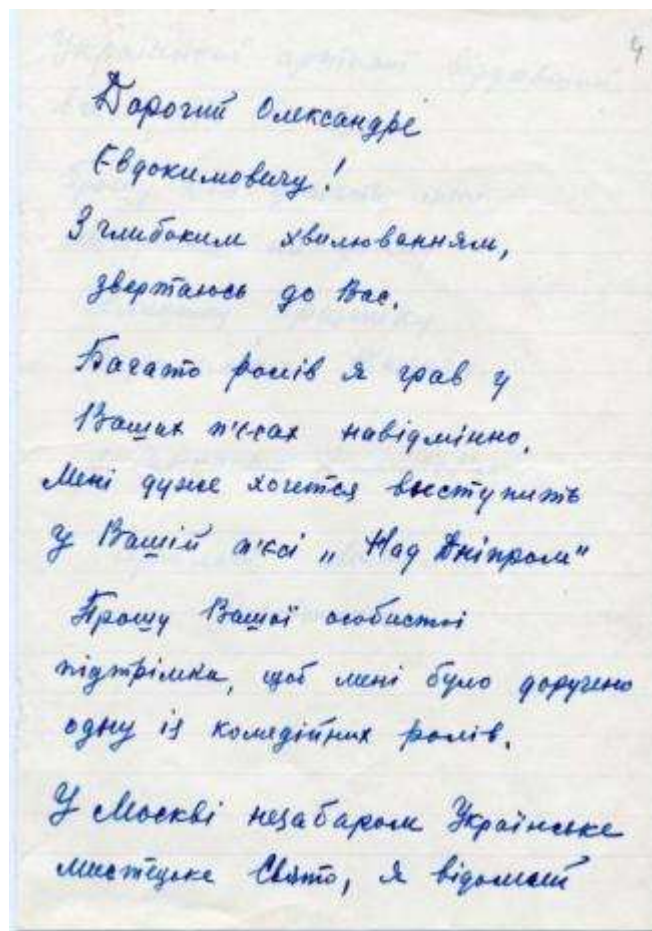 4
Дорогий Олександре
Євдокимовичу!
З глибоким хвилюванням,
звертаюсь до Вас.
Багато ролів я грав у
Ваших п'єсах навідмінно.
Мені дуже хочется виступить
У Вашій п'єсі „Над Дніпром"
Прошу Вашої особистої
підтрімка, щоб мені було доручено
одну із комедійних ролів.
У Москві незабаром Українське
мистецьке Свято, я відомий